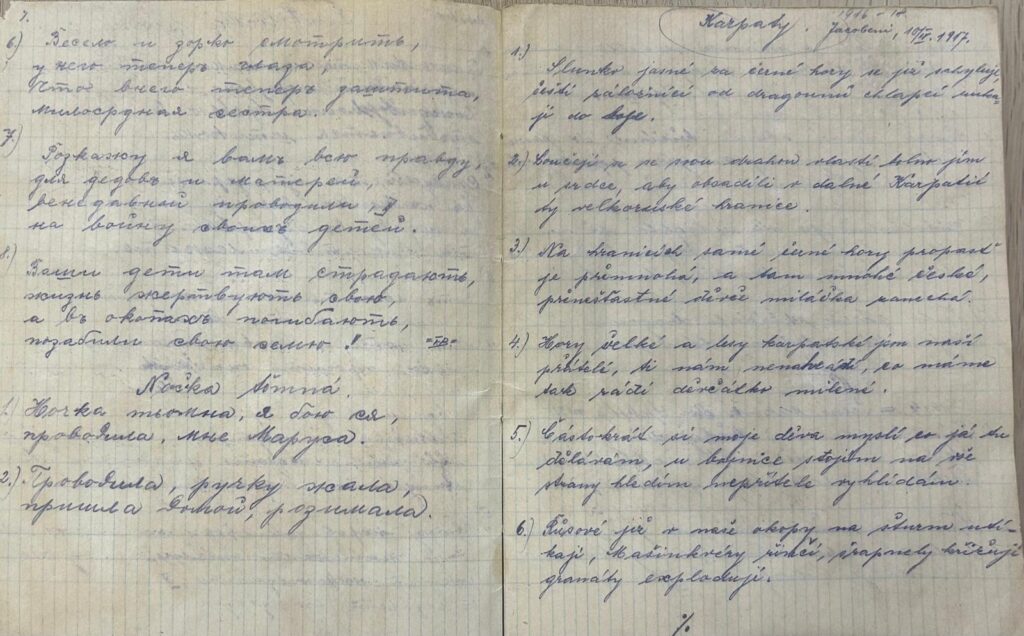 7.
6) Весело и зорко смотрить,
у него теперь
Что внего теперь
милосрдная сестра.
7.) Розкажу я вамъ всю правду,
для дедовъ и матерей,
венедавной проводили,
на войну своихъ детей.
8.) Ваши дети там страдають,
жизнь жертвують свою,
а въ окопахъ погибають,
позабили свою семю!
Nočka tomná.
1. Ночка тьомна, я бою ся,
проводила, мне Маруса.
2.) Проводила, ручку жала,
пришла домой, розимала.
Karpaty. 1916-18
Jacobeni, 10/IV. 1917.
1.) Slunko jasné za černé hory se již schyluje
čeští záložníci od dragounů chlapci
jí do boje.
2.) Loučejí se se svou drahou vlastí tolno jim
u srdce, aby obsadili v dalné Karpatii
ty velkoruské hranice.
3.) Na hranicích samé černé hory propast
je přemnohá, a tam mnohé české,
přenešťastné děvče miláčka zanechá.
4.) Hory velké a lesy karpatské jsou naší
přátelé, ti nám nenahradí, co máme
tak rádi děvčátko milené.
5.) Částokrát si moje děva myslí co já tu
dělávám, u bojnice stojím na vše
strany hledím nepřítele vyhlídám.
6.) Rusové již v naše okopy na šturm utí-
kají, Mašinkvéry řinčí, šrapnely křižují
granáty explodují.
%